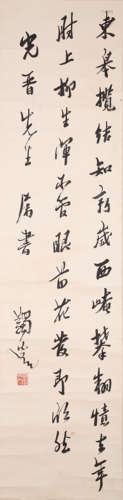 東皋攬結知新歲西崦攀翻憶去年
肘上柳生渾不管眼前花發即欣然
光晉先生屬書